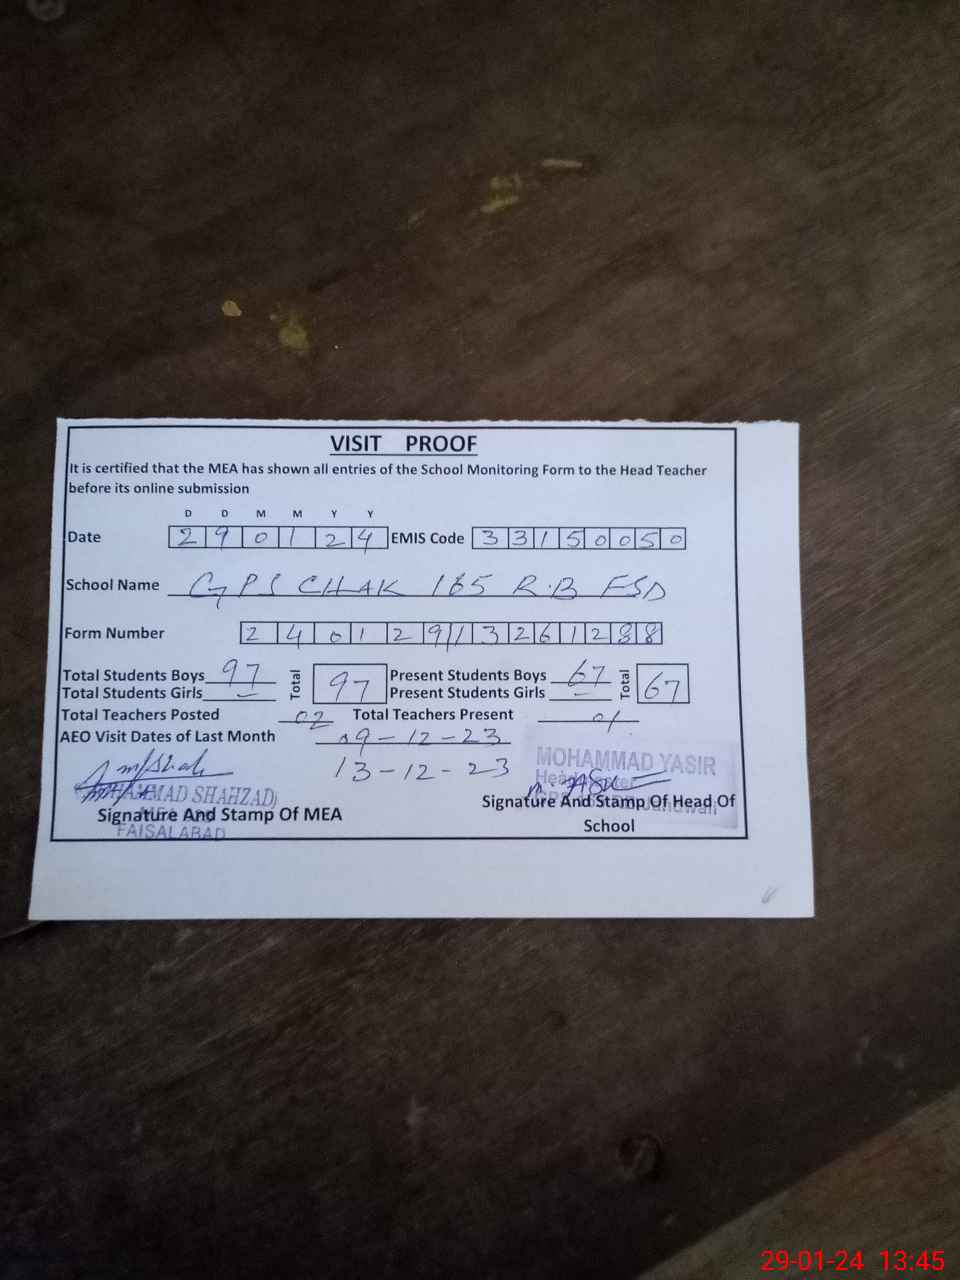 VISIT PROOF
It is certified that the MEA has shown all entries of the School Monitoring Form to the Head Teacher
before its online submission
D D M M Y Y
Date 2 9 0 1 2 4 EMIS Code 3 3 1 5 0 0 5 0
School Name GPS CHAK 165 R.B FSD
Form Number 2 4 0 1 2 9 1 3 2 6 1 2 8 8
Total Students Boys 97 Total 97 Present Students Boys 67 Total 67
Total Students Girls — Present Students Girls —
Total Teachers Posted 02 Total Teachers Present 01
AEO Visit Dates of Last Month 09-12-23
13-12-23
MOHAMMAD YASIR
MUHAMMAD SHAHZAD
Signature And Stamp Of MEA
FAISALABAD
Signature And Stamp Of Head Of
School
29-01-24 13:45